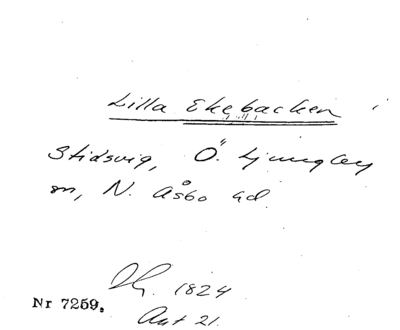 Lilla Ekebacken
Stidsvig, Ö. Ljungby
sn, N. Åsbo hd.
1824
Nr 7259.
Akt 21.